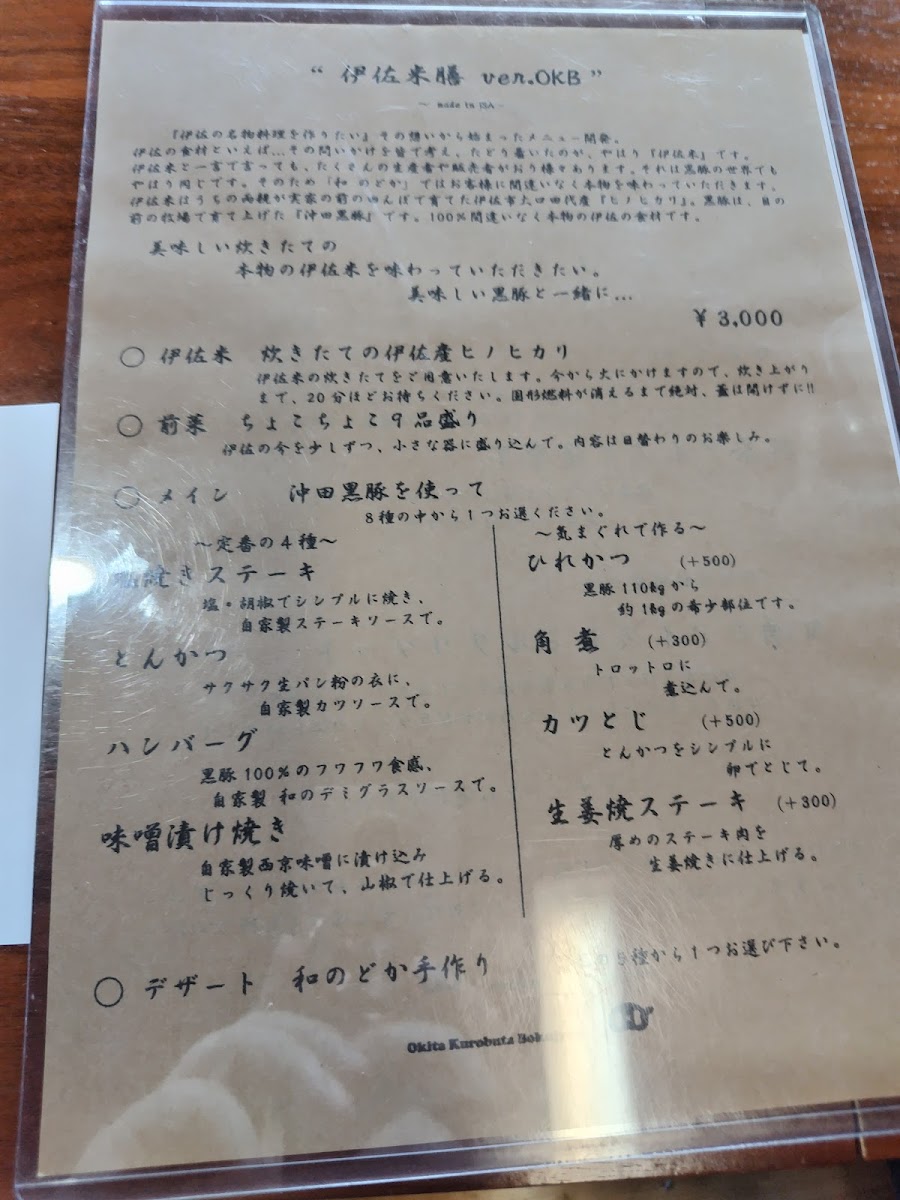 “ 伊佐米膳 ver.OKB ”
～ made in ISA ～
『伊佐の名物料理を作りたい』その想いから始まったメニュー開発。
伊佐の食材といえば…その問いかけを皆で考え、たどり着いたのが、やはり『伊佐米』です。
伊佐米と一言で言っても、たくさんの生産者や販売者がおり様々あります。それは黒豚の世界でも
やはり同じです。そのため「和 のどか」ではお客様に間違いなく本物を味わっていただきます。
伊佐米はうちの両親が実家の前の田んぼで育てた伊佐市大口田代産『ヒノヒカリ』。黒豚は、目の
前の牧場で育て上げた『沖田黒豚』です。100％間違いなく本物の伊佐の食材です。
美味しい炊きたての
本物の伊佐米を味わっていただきたい。
美味しい黒豚と一緒に…
￥3,000
○ 伊佐米 炊きたての伊佐産ヒノヒカリ
伊佐米の炊きたてをご用意いたします。今から火にかけますので、炊き上がり
まで、20分ほどお待ちください。固形燃料が消えるまで絶対、蓋は開けずに!!
○ 前菜 ちょこちょこ９品盛り
伊佐の今を少しずつ、小さな器に盛り込んで。内容は日替わりのお楽しみ。
○ メイン 沖田黒豚を使って
８種の中から１つお選ください。
～定番の４種～
焼きステーキ
塩・胡椒でシンプルに焼き、
自家製ステーキソースで。
とんかつ
サクサク生パン粉の衣に、
自家製カツソースで。
ハンバーグ
黒豚100％のフワフワ食感、
自家製 和のデミグラスソースで。
味噌漬け焼き
自家製西京味噌に漬け込み
じっくり焼いて、山椒で仕上げる。
～気まぐれで作る～
ひれかつ (+500)
黒豚110㎏から
約1㎏の希少部位です。
角煮 (+300)
トロットロに
煮込んで。
カツとじ (+500)
とんかつをシンプルに
卵でとじて。
生姜焼ステーキ (+300)
厚めのステーキ肉を
生姜焼きに仕上げる。
○ デザート 和のどか手作り
種から１つお選び下さい。
Okita Kurobuta